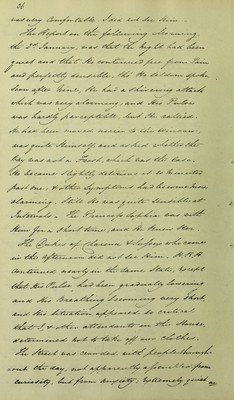 36
was very Comfortable. I did not see Him.
The Report on the following Morning,
the 5th January, was that the Night had been
quiet and that He continued free from Pain
and perfectly sensible, tho' He seldom spoke
Soon after Noon, He had a shivering attack
which was very alarming, and His Pulse
was hardly perceptible, but He rallied.
He had been moved nearer to the Window,
was quite Himself, and asked whether the
Day was not a Frost, which was the case.
He became slightly delirious at 20 minutes
past one, & other Symptoms had become more
alarming. Still He was quite sensible at
Intervals. The Princess Sophia was with
Him for a short time, and He knew Her.
The Dukes of Clarence & Sussex who came
in the afternoon did not see Him. H.R.H.
continued nearly in the same State, except
that His Pulse had been gradually lowering
and His Breathing becoming very short,
and His Situation appeared so critical
that I, & other attendants in the House,
determined not to take off our clothes.
The Street was crowded with people through-
out the day, not apparently assembled from
curiosity, but from anxiety, Extremely quiet